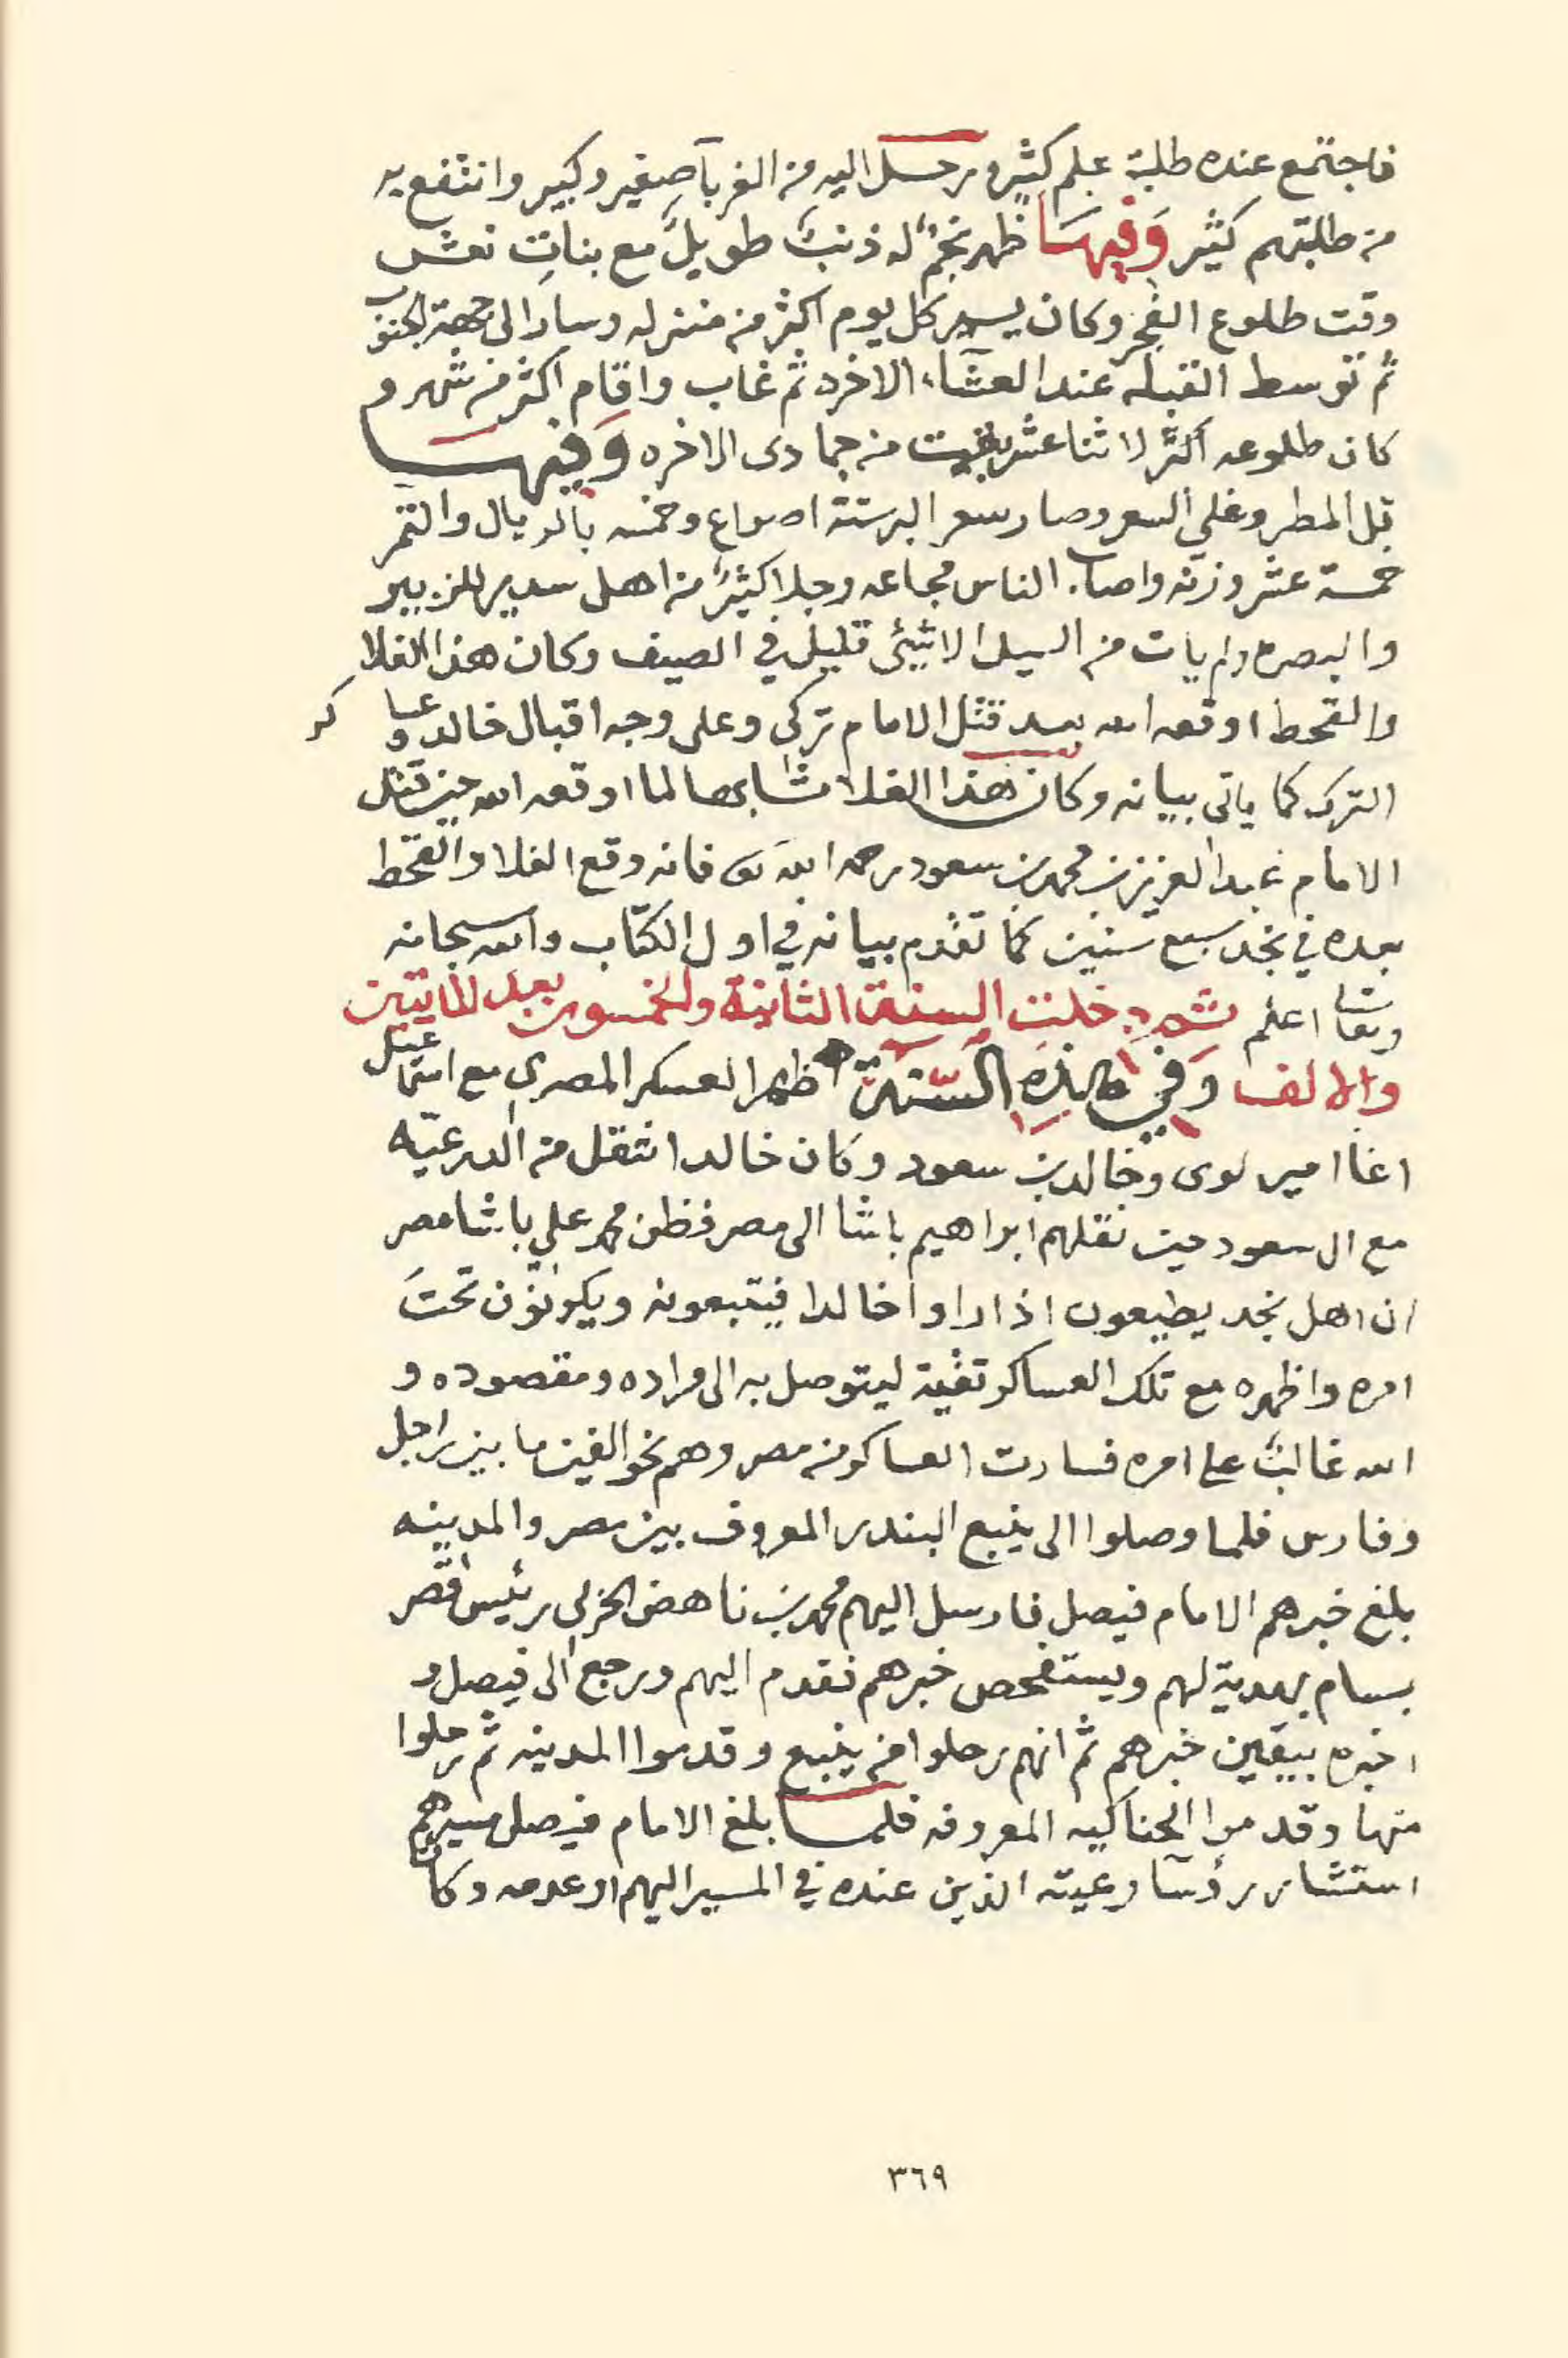 فاجتمع عنده طلبة علم كثير ورحل اليه من الغربآ صغير وكبير وانتفع به
من طلبتهم كثير وَفِيهَا ظهر نجمٌ له ذنبٌ طويلٌ مع بنات نعش
وقت طلوع الفجر وكان يسير كل يوم اكثر من منزله وسار الى جهة الجنوب
ثم توسط القبله عند العشآء الاخره ثم غاب واقام اكثر من شهر و
كان طلوعه لاثنا عشر بقيت من جمادى الاخره وَفِيهَا
قل المطر وغلي السعر وصار سعر البر ستة اصواع وخمسه بالريال والتمر
خمسة عشر وزنه واصاب الناس مجاعه وجلا كثيرٌ من اهل سدير للزبير
والبصره ولم يات من السيل الا شيئ قليل في الصيف وكان هذا الغلا
والقحط اوقعه الله بعد قتل الامام تركي وعلى وجه اقبال خالد وعساكر
الترك كما ياتي بيانه وكان هذا الغلا مشابها لما اوقعه الله حين قتل
الامام عبد العزيز بن محمد بن سعود رحمه الله تعا فانه وقع الغلا والقحط
بعده في نجد سبع سنين كما تقدم بيانه في اول الكتاب والله سبحانه
وتعا اعلم ثم دخلت السنة الثانية والخمسون بعد المايتين
والالف وَفي هَذِهِ السَّنَة اظهر العسكر المصري مع اسماعيل
اغا امير لوى وخالد بن سعود وكان خالد انتقل من الدرعيّه
مع ال سعود حين نقلهم ابراهيم باشا الى مصر فظن محمد علي باشا مصر
ان اهل نجد يطيعون اذا راوا خالدا فيتبعونه ويكونون تحتَ
امره واظهره مع تلك العساكر تقية ليتوصل به الى مراده ومقصوده و
الله غالبٌ على امره فسارت العساكر من مصر وهم نحو الفين ما بين راجل
وفارس فلما وصلوا الى ينبع البندر المعروف بين مصر والمدينه
بلغ خبرهم الامام فيصل فارسل اليهم محمد بن ناهض الحربي رئيس قصر
بسام بهدية لهم ويستفحص خبرهم فقدم اليهم ورجع الى فيصل و
اخبره بيقين خبرهم ثم انهم رحلوا من ينبع وقدموا المدينه ثم رحلوا
منها وقدموا الحناكيه المعروفه فلما بلغ الامام فيصل مسيرهم
استشار رؤسآ رعيته الذين عنده في المسير اليهم او عدمه وكان
٣٦٩